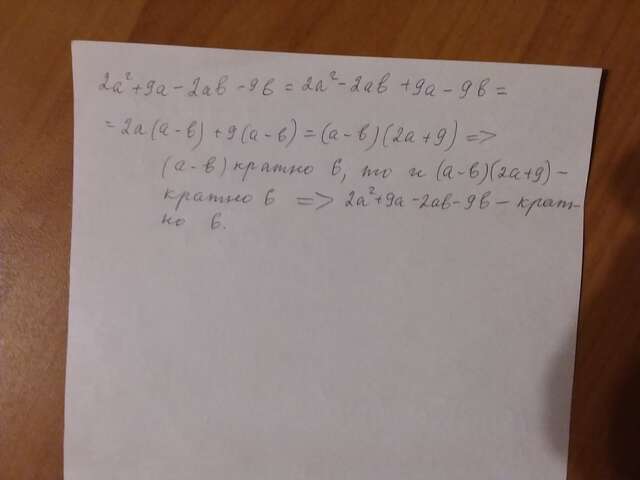 2a²+9a-2ab-9b=2a²-2ab+9a-9b=
=2a(a-b)+9(a-b)=(a-b)(2a+9)=>
(a-b) кратно 6, то и (a-b)(2a+9)-
кратно 6 => 2a²+9a-2ab-9b-крат-
но 6.